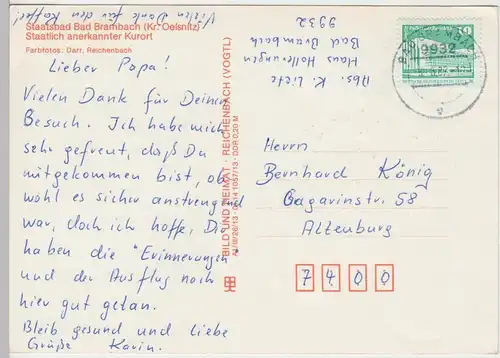 Vielen Dank für den Kaffee!
Staatsbad Bad Brambach (Kr. Oelsnitz)
Staatlich anerkannter Kurort
Farbfotos: Darr, Reichenbach
Lieber Papa!
Vielen Dank für Deinen
Besuch. Ich habe mich
sehr gefreut, daß Du
mitgekommen bist, ob-
wohl es sicher anstrengend
war, doch ich hoffe, Dir
haben die "Erinnerungen"
und der Ausflug nach
hier gut getan.
Bleib gesund und liebe
Grüße Karin.
BILD UND HEIMAT · REICHENBACH (VOGTL)
DDR 0,20 M
Abs. K. Liete
Haus
Bad Brambach
9932
10
9932
Herrn
Bernhard König
Gagarinstr. 58
Altenburg
7400